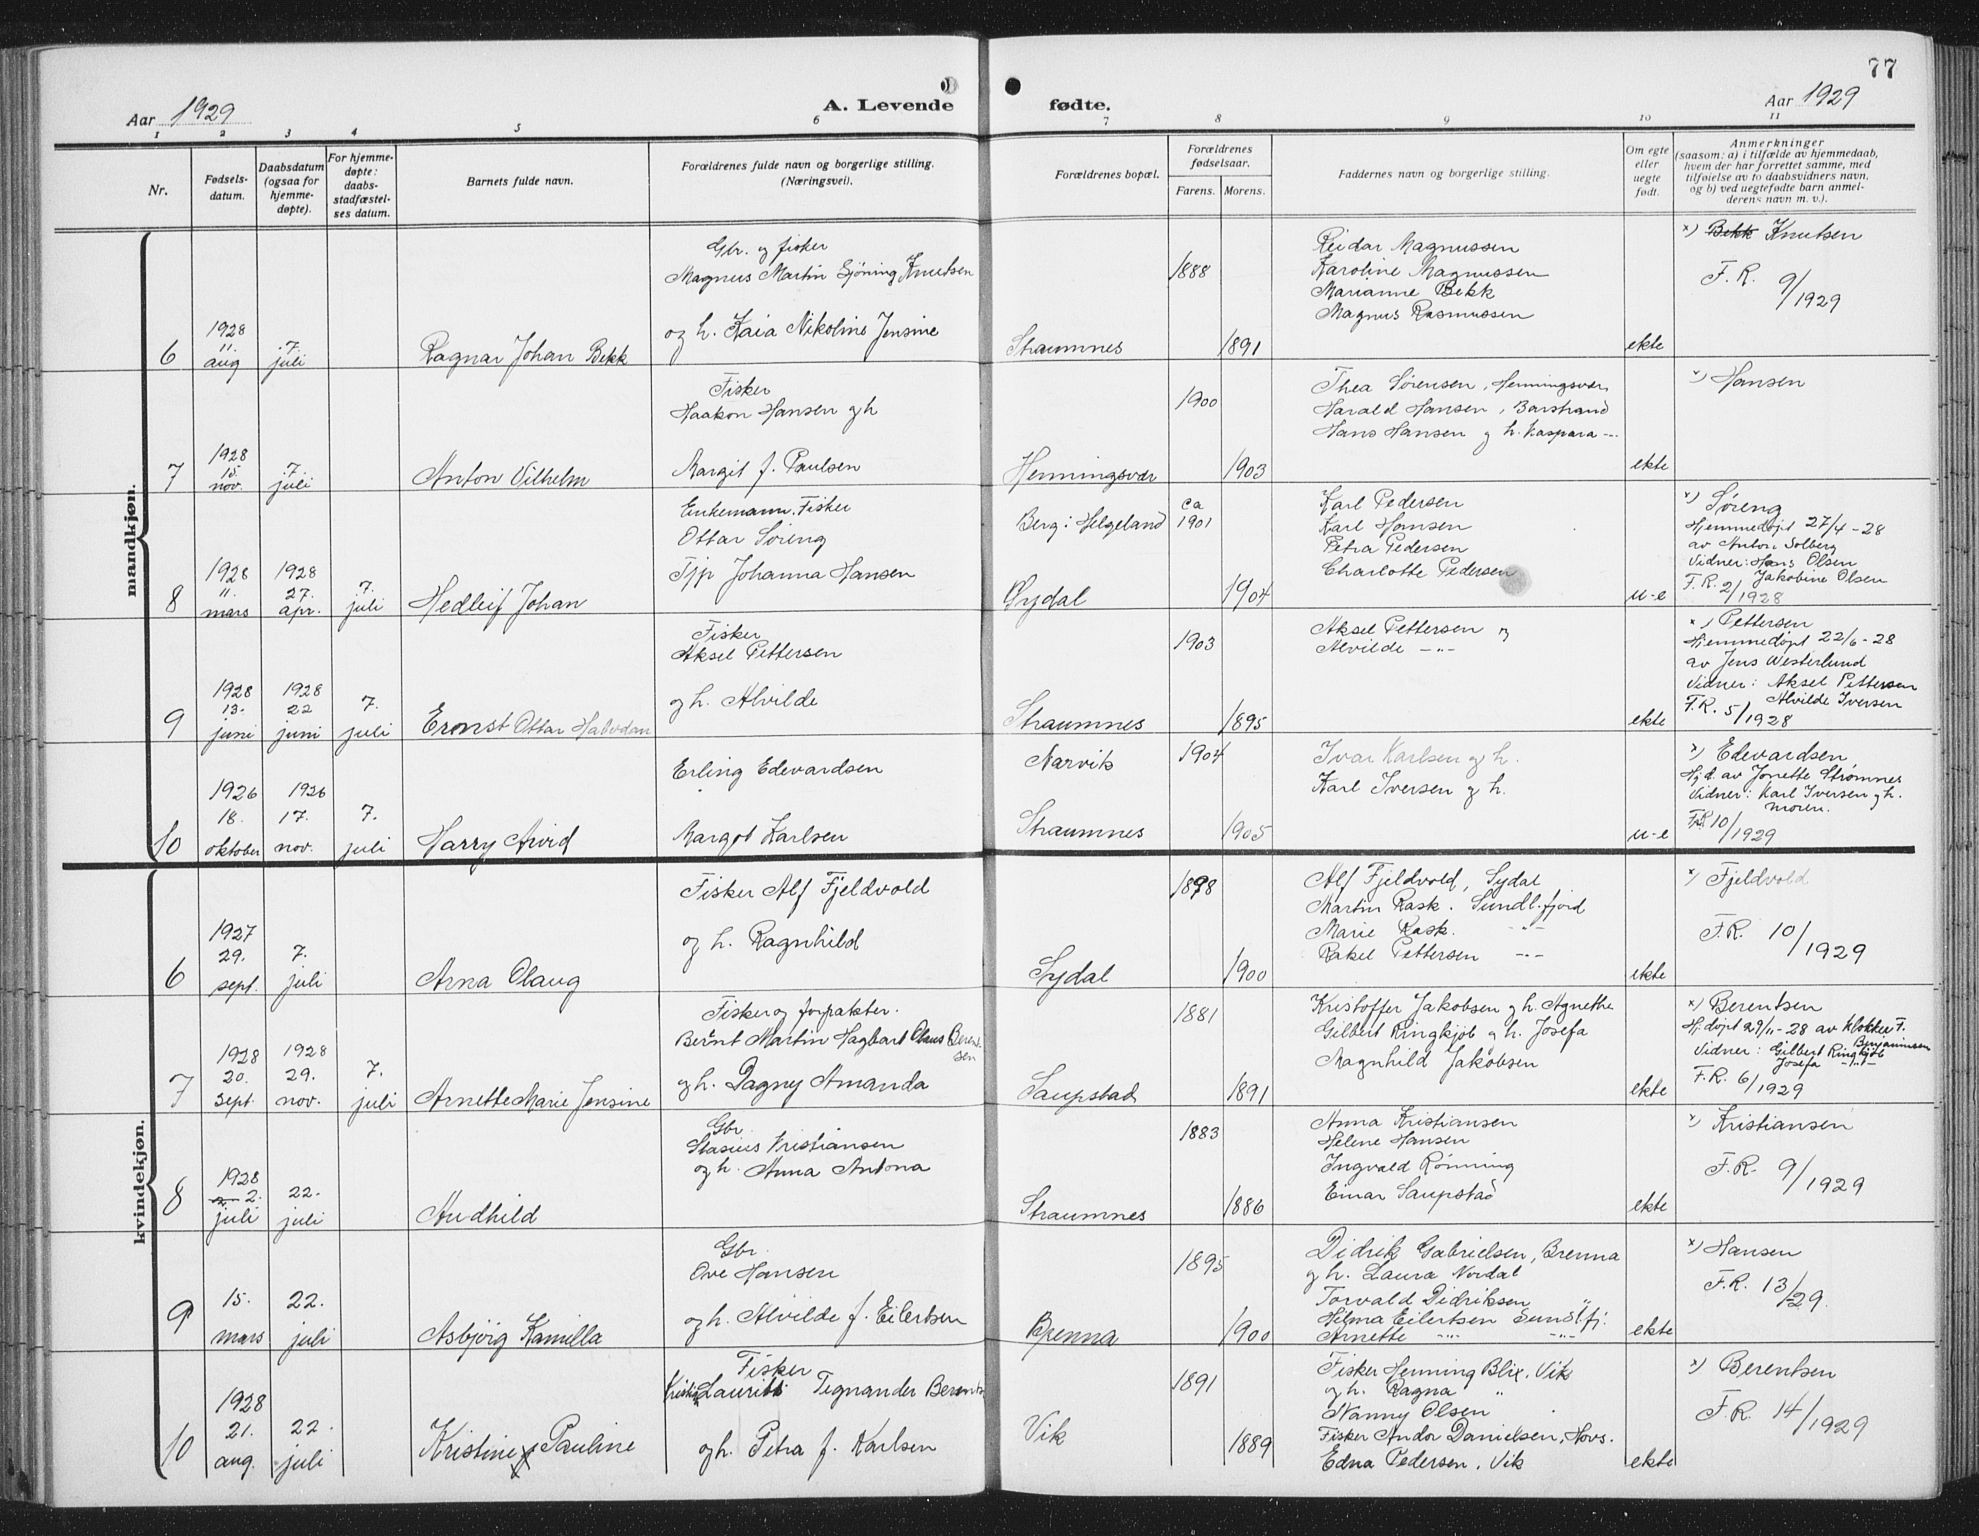 77
Aar 1929
A. Levende fødte.
Aar 1929
1 2 3 4 5 6 7 8 9 10 11
Nr.
Fødsels-
datum.
Daabsdatum
(ogsaa for
hjemme-
døpte).
For hjemme-
døpte:
daabs-
stadfæstel-
ses datum.
Barnets fulde navn.
Forældrenes fulde navn og borgerlige stilling.
(Næringsvei).
Forældrenes bopæl.
Forældrenes
fødselsaar.
Farens. Morens.
Faddernes navn og borgerlige stilling.
Om egte
eller
uegte
født.
Anmerkninger
(saasom: a) i tilfælde av hjemmedaab,
hvem der har forrettet samme, med
tilføielse av to daabsvidners navn,
og b) ved uegtefødte barn anmel-
derens navn m. v.).
mandkjøn.
6
1928
11.
aug
7.
juli
Ragnar Johan Bekk
Gbr. og fisker
Magnus Martin Sjöning Knutsen
og h. Kaia Nikoline Jensine
Straumnes
1888
1891
Reidar Magnussen
Karoline Magnussen
Marianne Bekk
Magnus Rasmussen
ekte
x) Bekk Knutsen
F. R. 9/1929
7
1928
15.
nov.
7.
juli
Anton Vilhelm
Fisker
Haakon Hansen og h
Margit f. Paulsen
Henningsvær
1900
1903
Thea Sørensen, Henningsvær
Harald Hansen, Barstrand
Hans Hansen og h. Kaspara -"-
ekte
x) Hansen
8
1928
11.
mars
1928
27.
apr.
7.
juli
Hedleif Johan
Enkemann. Fisker
Ottar Søreng
Tjp Johanna Hansen
Berg i Helgeland
Sydal
ca
1901
1904
Karl Pedersen
Karl Hansen
Petra Pedersen
Charlotte Pedersen
u-e
x) Søreng
Hjemmedøpt 27/4-28
av Anton Solberg
Vidner: Hans Olsen
Jakobine Olsen
F. R. 2/1928
9
1928
13.
juni
1928
22
juni
7.
juli
Ernst Ottar Halvdan
Fisker
Aksel Pettersen
og h. Alvilde
Straumnes
1903
1895
Aksel Pettersen og
Alvilde -"-
ekte
x) Pettersen
Hjemmedøpt 22/6-28
av Jens Westerlund
Vidner: Aksel Pettersen
Alvilde Iversen
F. R. 5/1928
10
1926
18.
oktober
1926
17.
nov.
7.
juli
Harry Arvid
Erling Edevardsen
Margot Karlsen
Narvik
Straumnes
1904
1905
Ivar Karlsen og h.
Karl Iversen og h.
u-e
x) Edevardsen
Hjd. av Jonette Strømnes
Vidner: Karl Iversen og h.
moren.
F.R. 10/1929
kvindekjøn.
6
1927
29.
sept.
7.
juli
Arna Olaug
Fisker Alf Fjeldvold
og h. Ragnhild
Sydal
1898
1900
Alf Fjeldvold, Sydal
Martin Rask. Sundl.fjord
Marie Rask. -"-
Rakel Pettersen -"-
ekte
x) Fjeldvold
F.R. 10/1929
7
1928
20.
sept.
1928
29.
nov.
7.
juli
Arnette Marie Jensine
Fisker og forpakter.
Bernt Martin Hagbart Olaus Berent-
sen
og h. Dagny Amanda
Saupstad
1881
1891
Kristoffer Jakobsen og h. Agnethe
Gilbert Ringkjöb og h. Josefa
Magnhild Jakobsen
ekte
x) Berentsen
Hj.døpt 29/11-28 av klokker F.
Benjaminsen
Vidner: Gilbert Ringkjöb
Josefa -"-
F. R. 6/1929
8
1928
2.
juli
22.
juli
Audhild
Gbr.
Stasius Kristiansen
og h. Anna Antona
Straumnes
1883
1886
Anna Kristiansen
Helene Hansen
Ingvald Rønning
Einar Saupstad
ekte
x) Kristiansen
F.R. 9/1929
9
15.
mars
22.
juli
Asbjörg Kamilla
Gbr.
Ove Hansen
og h. Alvilde f. Eilertsen
Brenna
1895
1900
Didrik Gabrielsen, Brenna
og h. Laura Nordal
Torvald Didriksen "
Helma Eilertsen Sundl.fj.
Arnette -"- -"-
ekte
x) Hansen
F.R. 13/29.
10
1928
21.
aug.
22.
juli
Kristine Pauline
Fisker
Lauritz Tegnander Berents
og h. Petra f. Karlsen
Vik
1891
1889
Fisker Henning Blix, Vik
og h. Ragna "
Nanny Olsen "
Fisker Andor Danielsen, Hovs.
Edna Pedersen, Vik
ekte
x) Berentsen
F. R. 14/1929